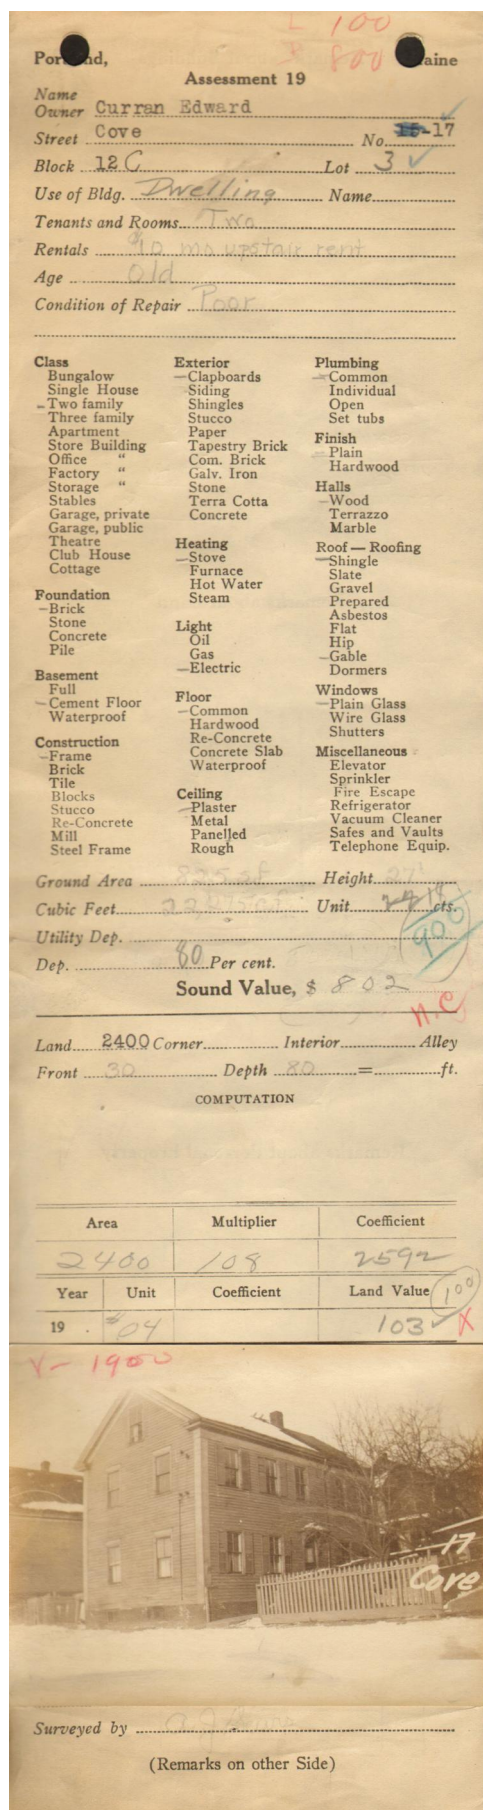 L 100
B 800
Portland, Maine
Assessment 19
Name
Owner Curran Edward
Street Cove No. -17
Block 12 C Lot 3
Use of Bldg. Dwelling Name
Tenants and Rooms Two
Rentals $10 mo upstair rent
Age Old
Condition of Repair Poor
Class
Bungalow
Single House
Two family
Three family
Apartment
Store Building
Office "
Factory "
Storage "
Stables
Garage, private
Garage, public
Theatre
Club House
Cottage
Foundation
Brick
Stone
Concrete
Pile
Basement
Full
Cement Floor
Waterproof
Construction
Frame
Brick
Tile
Blocks
Stucco
Re-Concrete
Mill
Steel Frame
Exterior
Clapboards
Siding
Shingles
Stucco
Paper
Tapestry Brick
Com. Brick
Galv. Iron
Stone
Terra Cotta
Concrete
Heating
Stove
Furnace
Hot Water
Steam
Light
Oil
Gas
Electric
Floor
Common
Hardwood
Re-Concrete
Concrete Slab
Waterproof
Ceiling
Plaster
Metal
Panelled
Rough
Plumbing
Common
Individual
Open
Set tubs
Finish
Plain
Hardwood
Halls
Wood
Terrazzo
Marble
Roof — Roofing
Shingle
Slate
Gravel
Prepared
Asbestos
Flat
Hip
Gable
Dormers
Windows
Plain Glass
Wire Glass
Shutters
Miscellaneous
Elevator
Sprinkler
Fire Escape
Refrigerator
Vacuum Cleaner
Safes and Vaults
Telephone Equip.
Ground Area 825 sf Height 27'
Cubic Feet Unit 18 cts.
Utility Dep. 900
Dep. 80 Per cent.
Sound Value, $ 802
N.C
Land 2400 Corner Interior Alley
Front 30 Depth 80 = ft.
COMPUTATION
Area Multiplier Coefficient
2400 108 2592
Year Unit Coefficient Land Value 100
19 $04 103 X
V- 1900
17
Cove
Surveyed by
(Remarks on other Side)